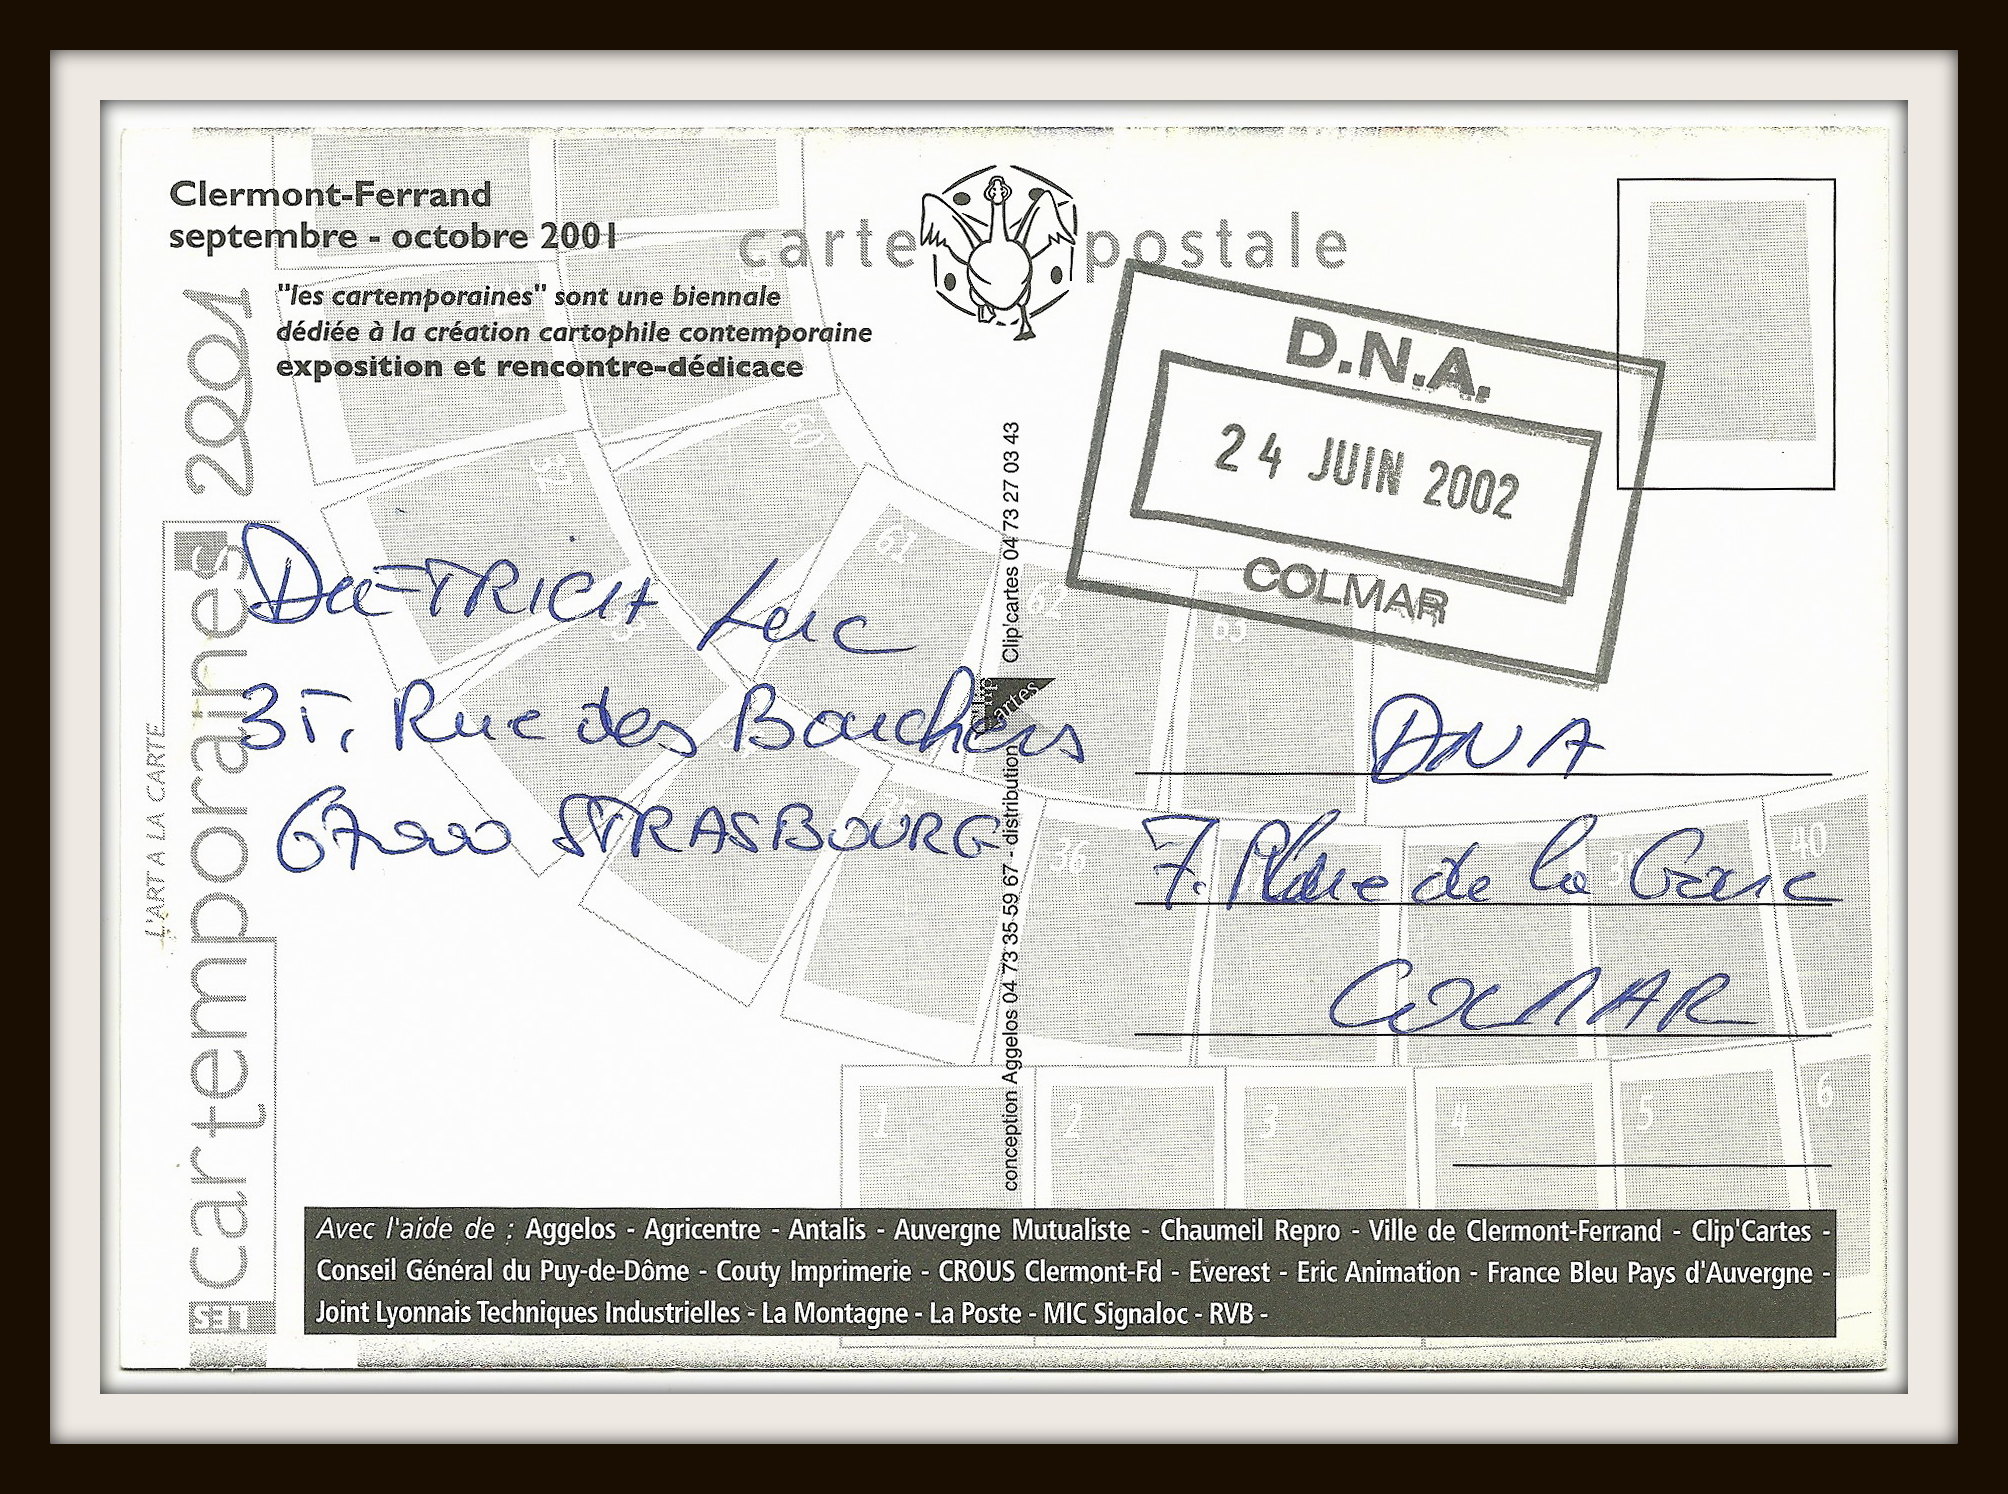 Clermont-Ferrand
septembre - octobre 2001
"les cartemporaines" sont une biennale
dédiée à la création cartophile contemporaine
exposition et rencontre-dédicace
carte postale
D.N.A.
24 JUIN 2002
COLMAR
L'ART A LA CARTE
LES cartemporaines 2001
DIETRICH Luc
35, Rue des Bouchers
67000 STRASBOURG
conception Aggelos 04 73 35 59 67 - distribution Clip'cartes 04 73 27 03 43
Clip
artes
DNA
7. Place de la Gare
COLMAR
60
61
62
63
36
40
1
2
3
4
5
6
Avec l'aide de : Aggelos - Agricentre - Antalis - Auvergne Mutualiste - Chaumeil Repro - Ville de Clermont-Ferrand - Clip'Cartes -
Conseil Général du Puy-de-Dôme - Couty Imprimerie - CROUS Clermont-Fd - Everest - Eric Animation - France Bleu Pays d'Auvergne -
Joint Lyonnais Techniques Industrielles - La Montagne - La Poste - MIC Signaloc - RVB -